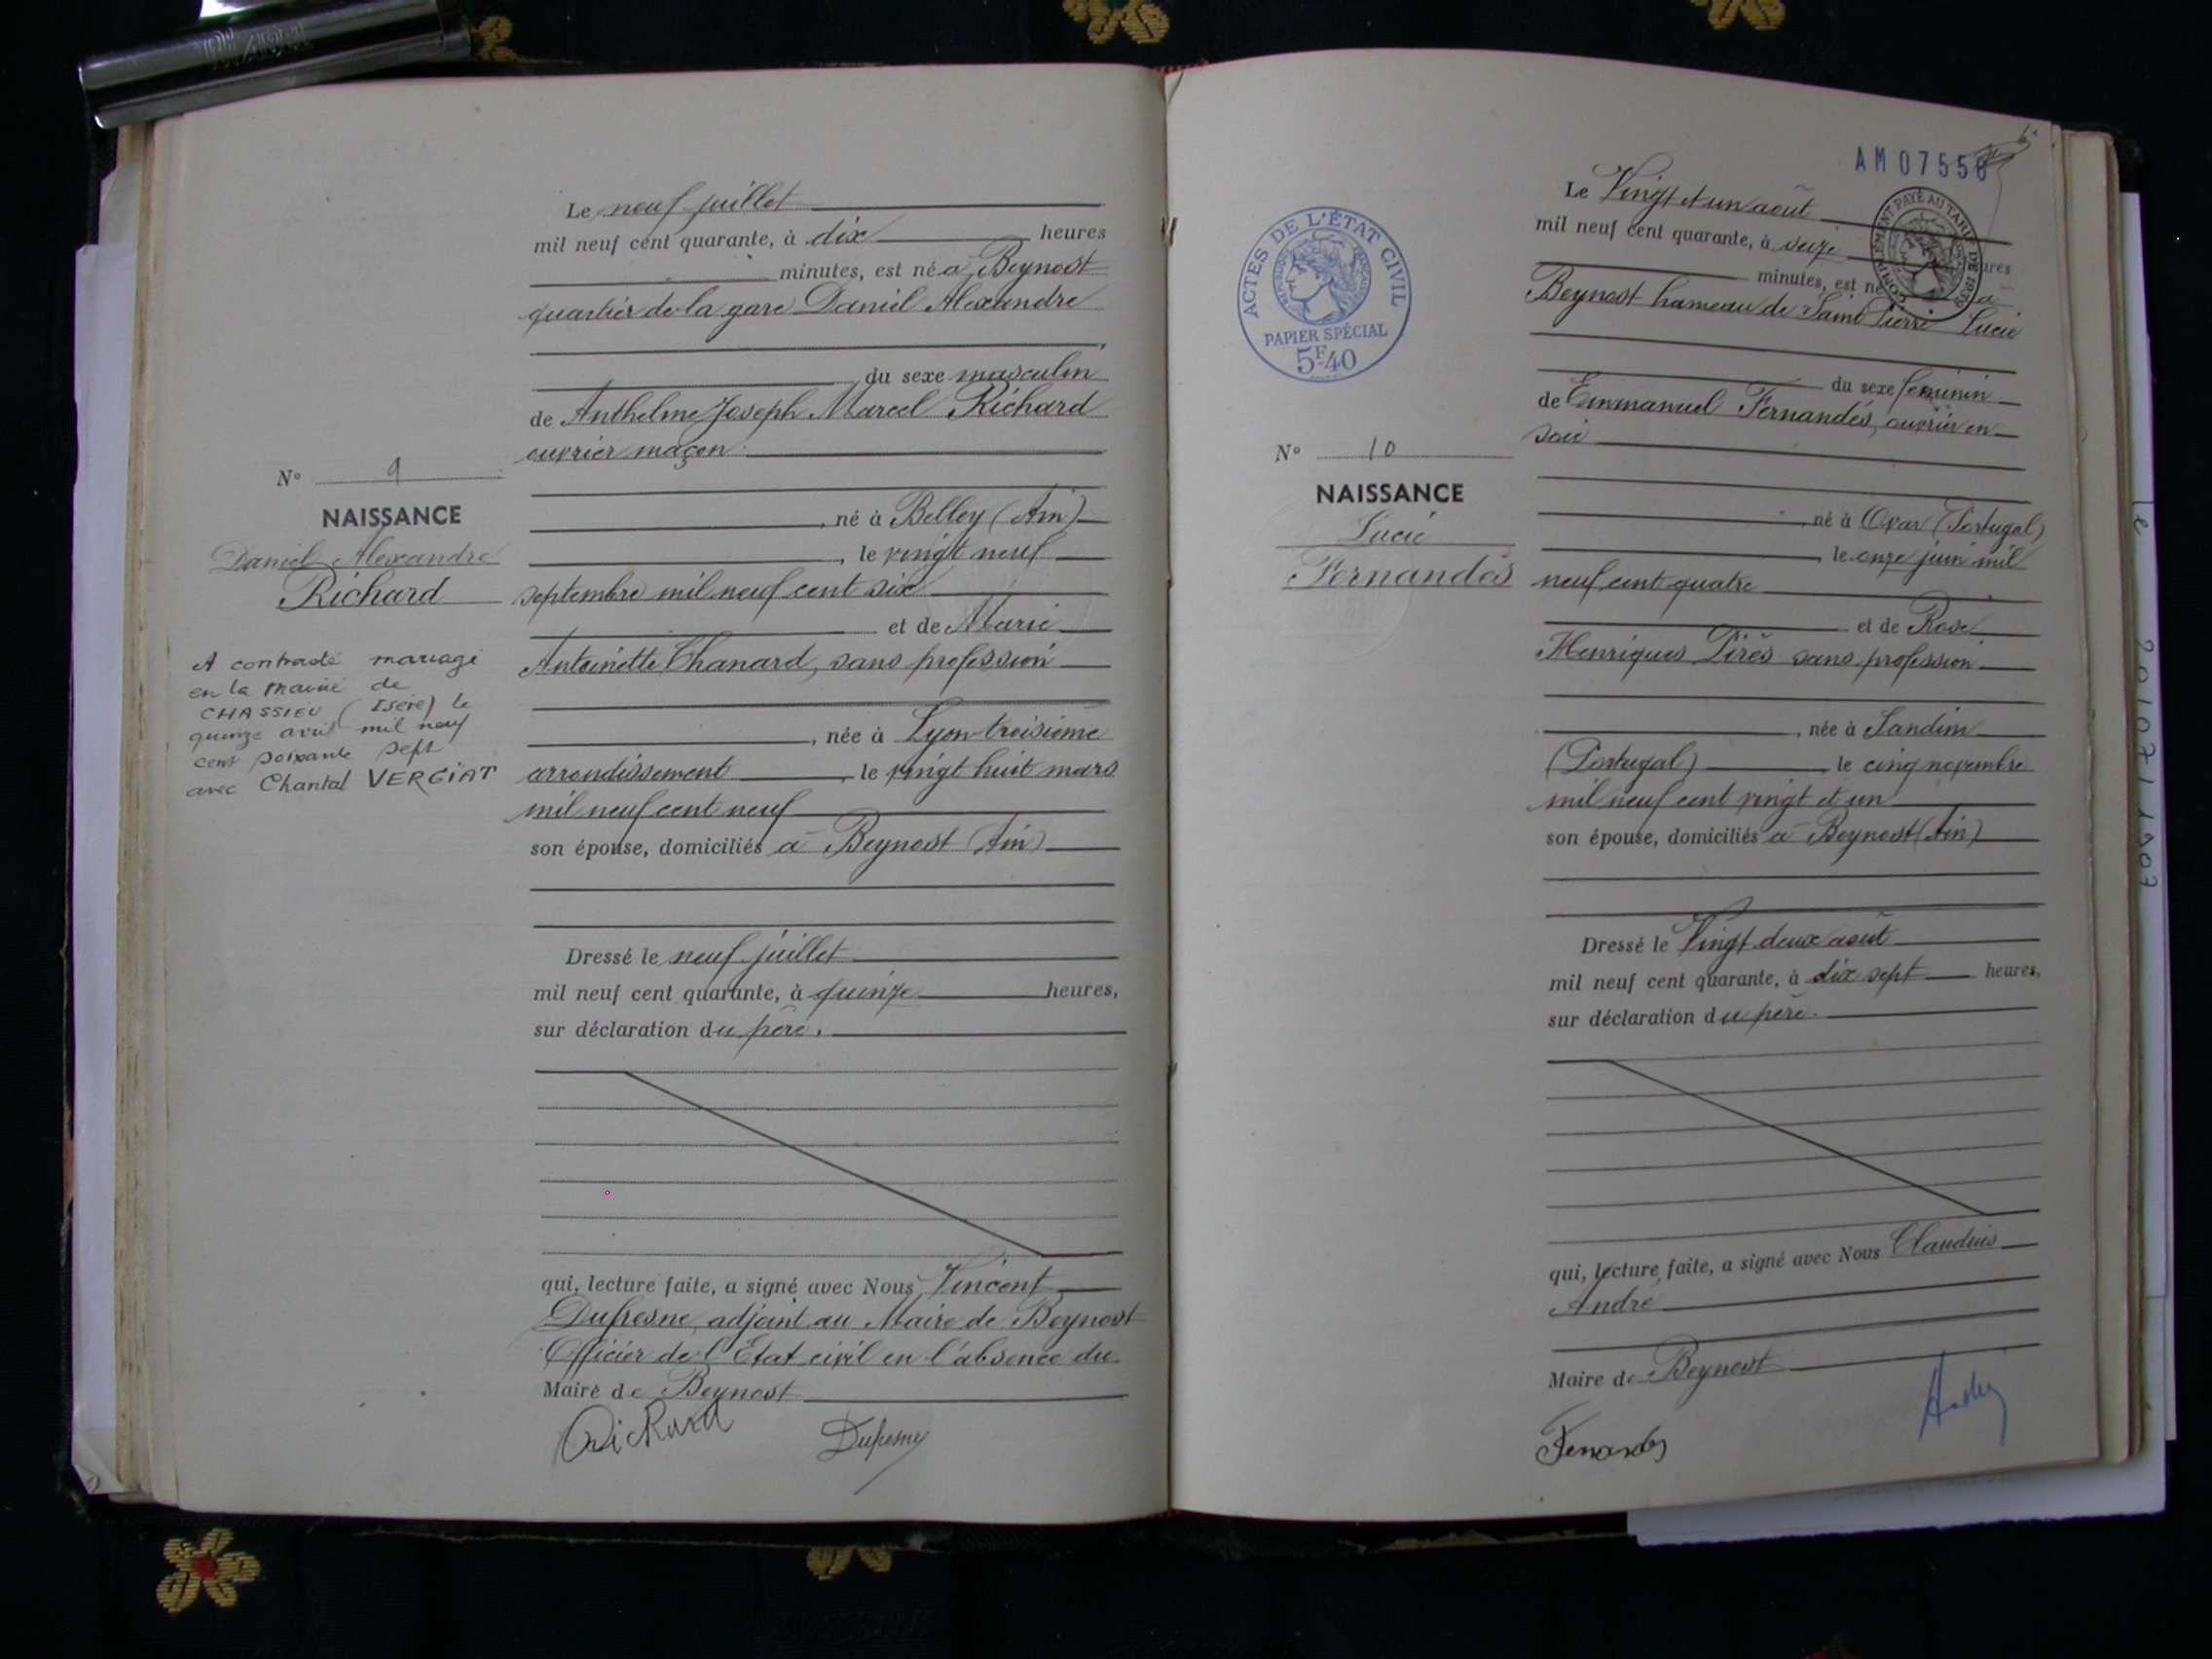 Le neuf juillet
mil neuf cent quarante, à dix heures
minutes, est né à Beynost
quartier de la gare Daniel Alexandre
du sexe masculin
de Anthelme Joseph Marcel Richard
ouvrier maçon
né à Belley (Ain)
, le vingt neuf
septembre mil neuf cent six
et de Marie
Antoinette Chanard, sans profession
, née à Lyon troisième
arrondissement le vingt huit mars
mil neuf cent neuf
son épouse, domiciliés à Beynost (Ain)
Dressé le neuf juillet
mil neuf cent quarante, à quinze heures,
sur déclaration du père.
qui, lecture faite, a signé avec Nous Vincent
Dufresne, adjoint au Maire de Beynost
Officier de l'Etat civil en l'absence du
Maire de Beynost
Richard
Dufresne
N° 9
NAISSANCE
Daniel Alexandre
Richard
A contracté mariage
en la mairie de
CHASSIEU (Isère) le
quinze avril mil neuf
cent soixante sept
avec Chantal VERGIAT
AM 07556
ACTES DE L'ÉTAT CIVIL
PAPIER SPÉCIAL
5F40
COMPLÉMENT PAYÉ AU TARIF DE 1939
Le Vingt et un août
mil neuf cent quarante, à seize heures
minutes, est né à
Beynost hameau de Saint Pierre Lucie
du sexe féminin
de Emmanuel Fernandès, ouvrier en
soie
, né à Ovar (Portugal)
le onze juin mil
neuf cent quatre
et de Rose
Henriques Pirès sans profession
, née à Sandim
(Portugal) le cinq novembre
mil neuf cent vingt et un
son épouse, domiciliés à Beynost (Ain)
Dressé le Vingt deux août
mil neuf cent quarante, à dix sept heures,
sur déclaration du père.
qui, lecture faite, a signé avec Nous Claudius
André
Maire de Beynost
Fernandes
N° 10
NAISSANCE
Lucie
Fernandès